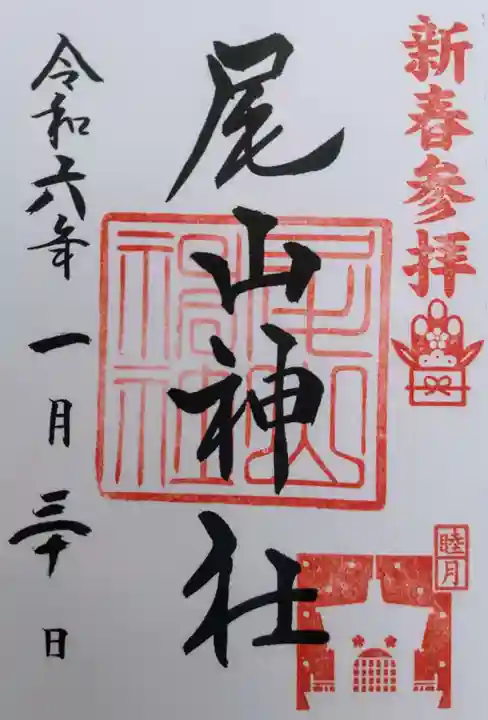 新春参拝
睦月
尾山神社
令和六年一月三十日